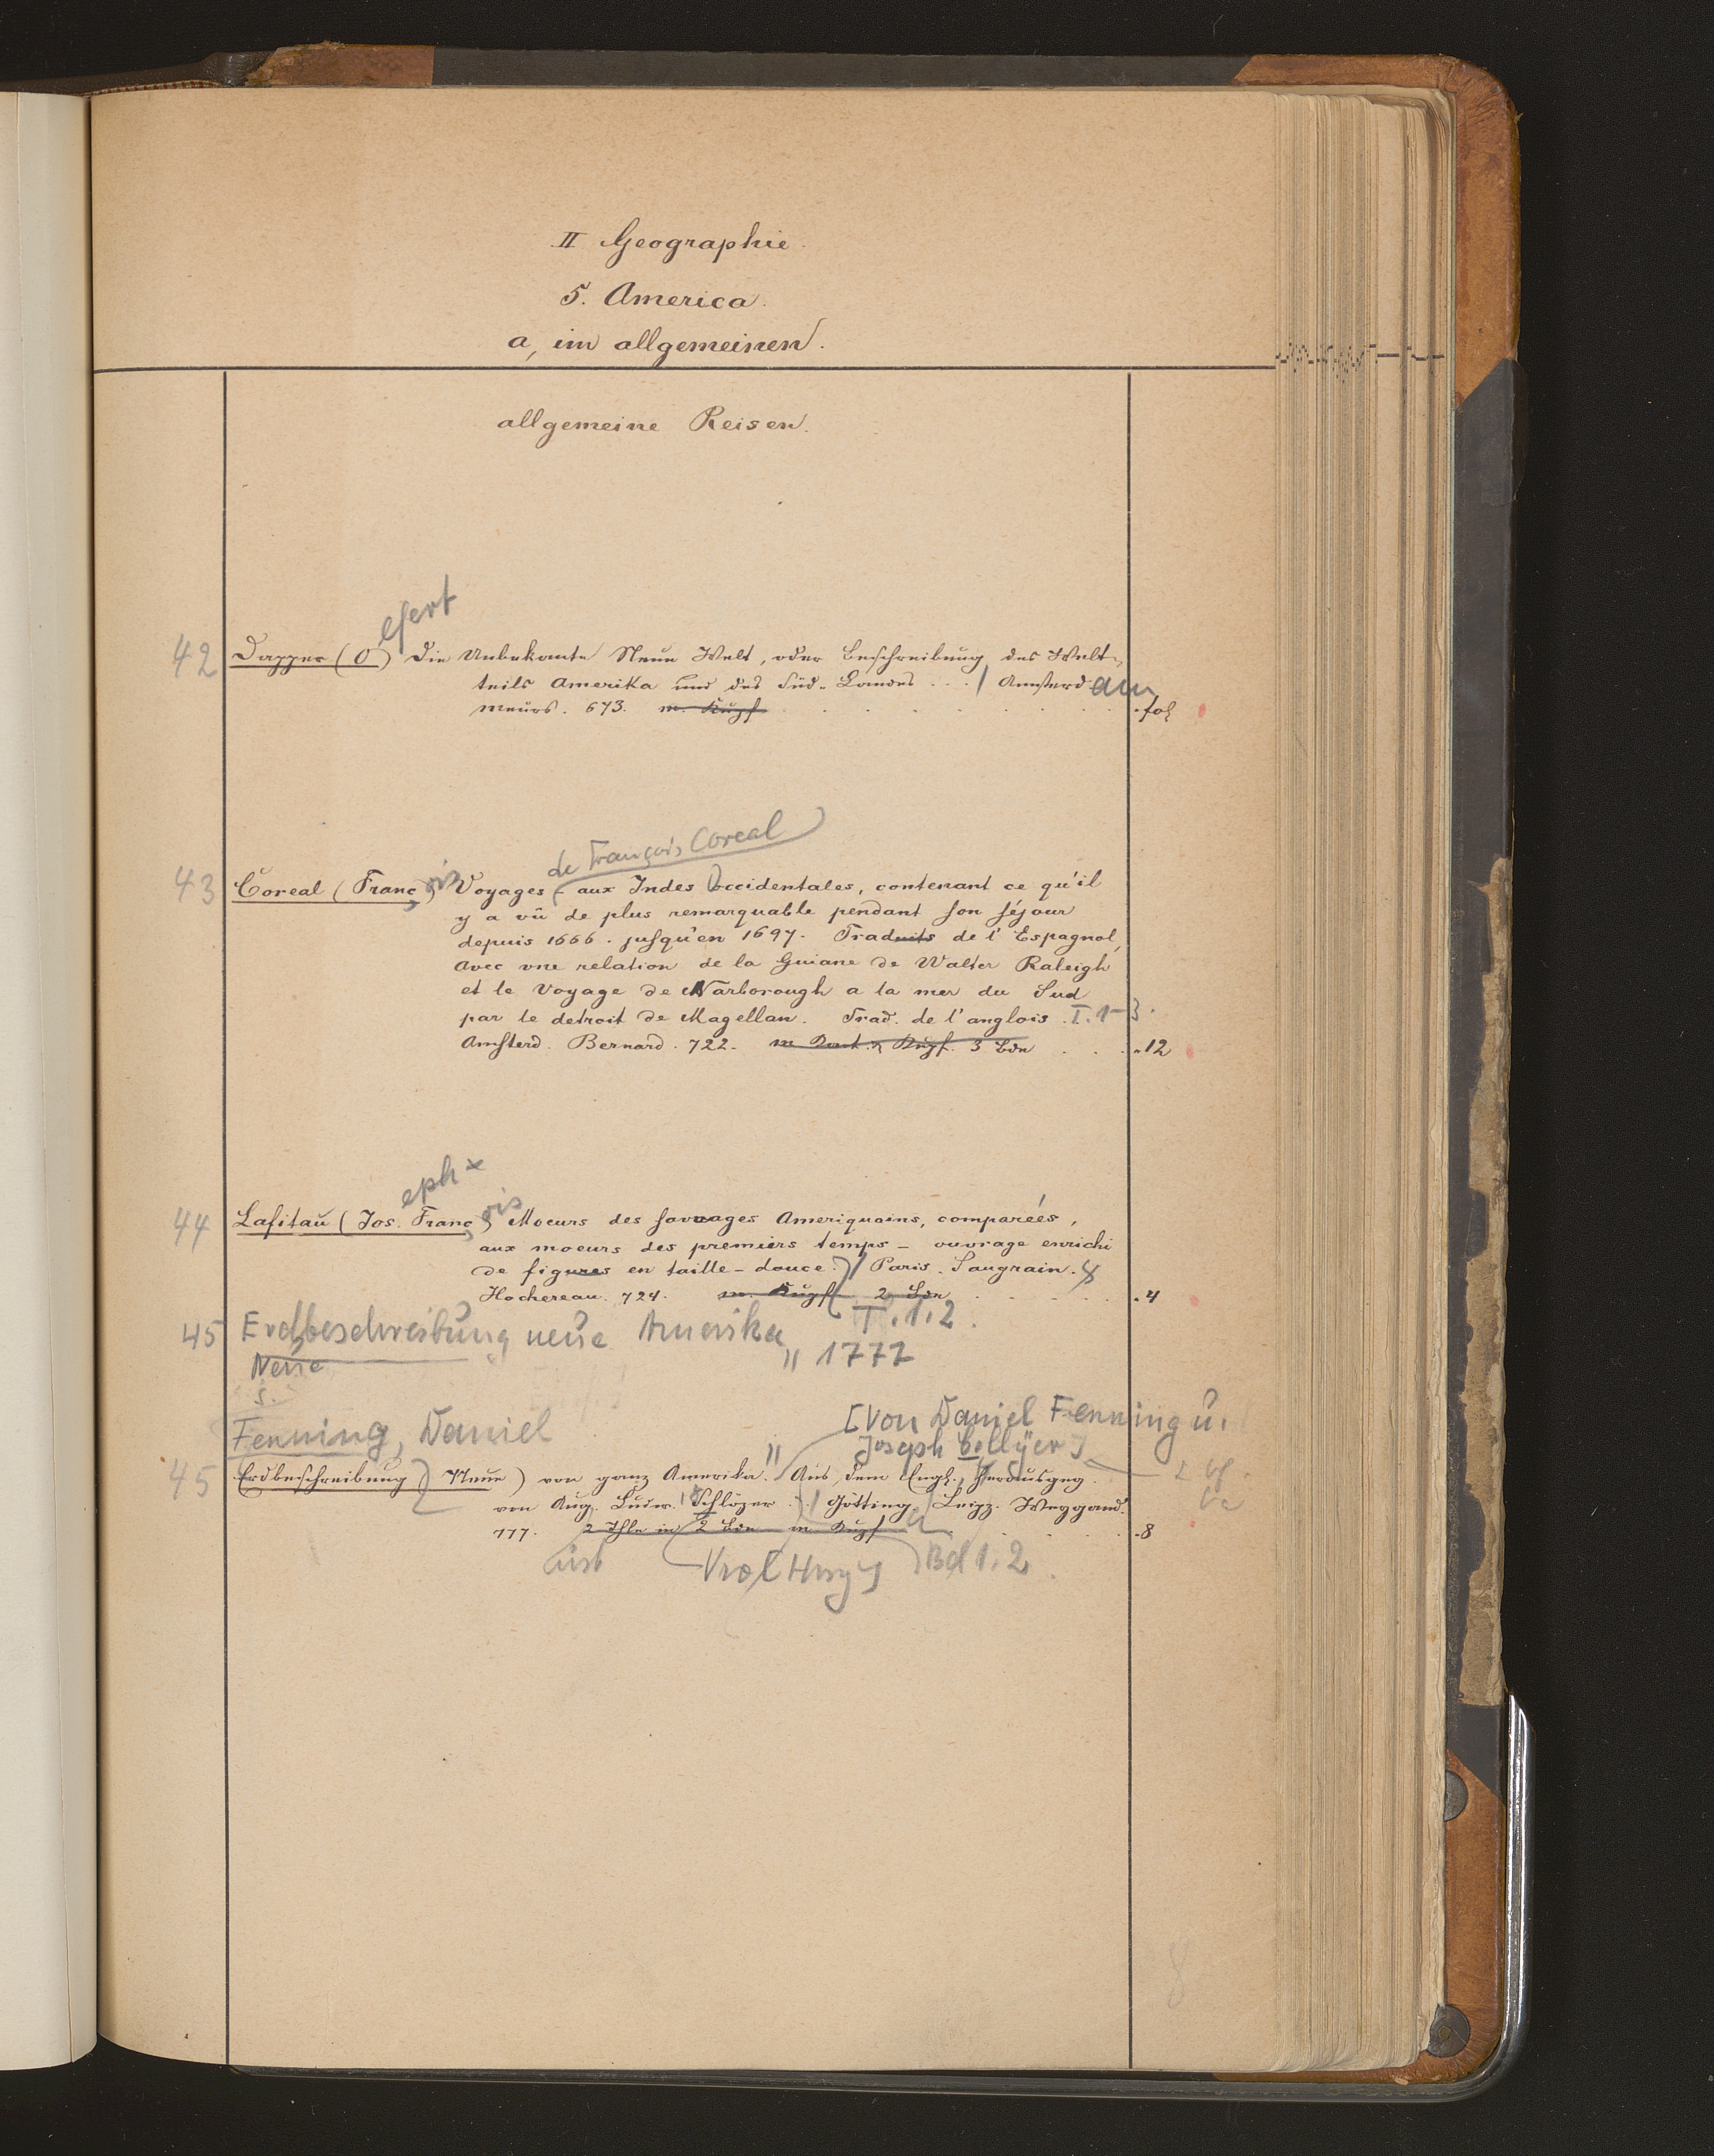 II Geographie.
5. America.
a, im allgemeinen.
allgemeine Reisen.
efert
42 Dapper (O.) Die Unbekante Neue Welt, oder Beschreibung des Welt-
teils Amerika und des Süd-Landes . . . / Amsterdam
Meurs. 673. m. Kupf . fol
de François Coreal
43 Coreal (Franç ois) Voyages aux Indes occidentales, contenant ce qu'il
y a vû de plus remarquable pendant son séjour
depuis 1666. jusqu'en 1697. Traduits de l'Espagnol,
avec vne relation de la Guiane de Walter Raleigh
et le Voyage de Narborough a la mer du Sud
par le detroit de Magellan. Trad. de l'anglois. T. 1-3.
Amsterd. Bernard. 722. m Kart. & Kupf. 3 Bde . . . 12
eph x
44 Lafitau (Jos. Franç ois) Moeurs des sauvages Ameriquains, comparées,
aux moeurs des premiers temps - ouvrage enrichi
de figures en taille-douce. / Paris. Saugrain.
Hochereau. 724. m. Kupf 2 Bde . 4
T. 1.2.
45 Erdbeschreibung neue Amerika
Neue " 1772
s.
Fenning, Daniel
[von Daniel Fenning u.
Joseph Collyer]
45 Erdbeschreibung (Neue) von ganz Amerika. Aus dem Engl. Herausgeg.
von Aug. Ludw. Schlözer . . / Götting. / Leipz. Weygand.
777. 2 Thle in 2 Bde m. Kupf . 8
Bd 1.2.
8